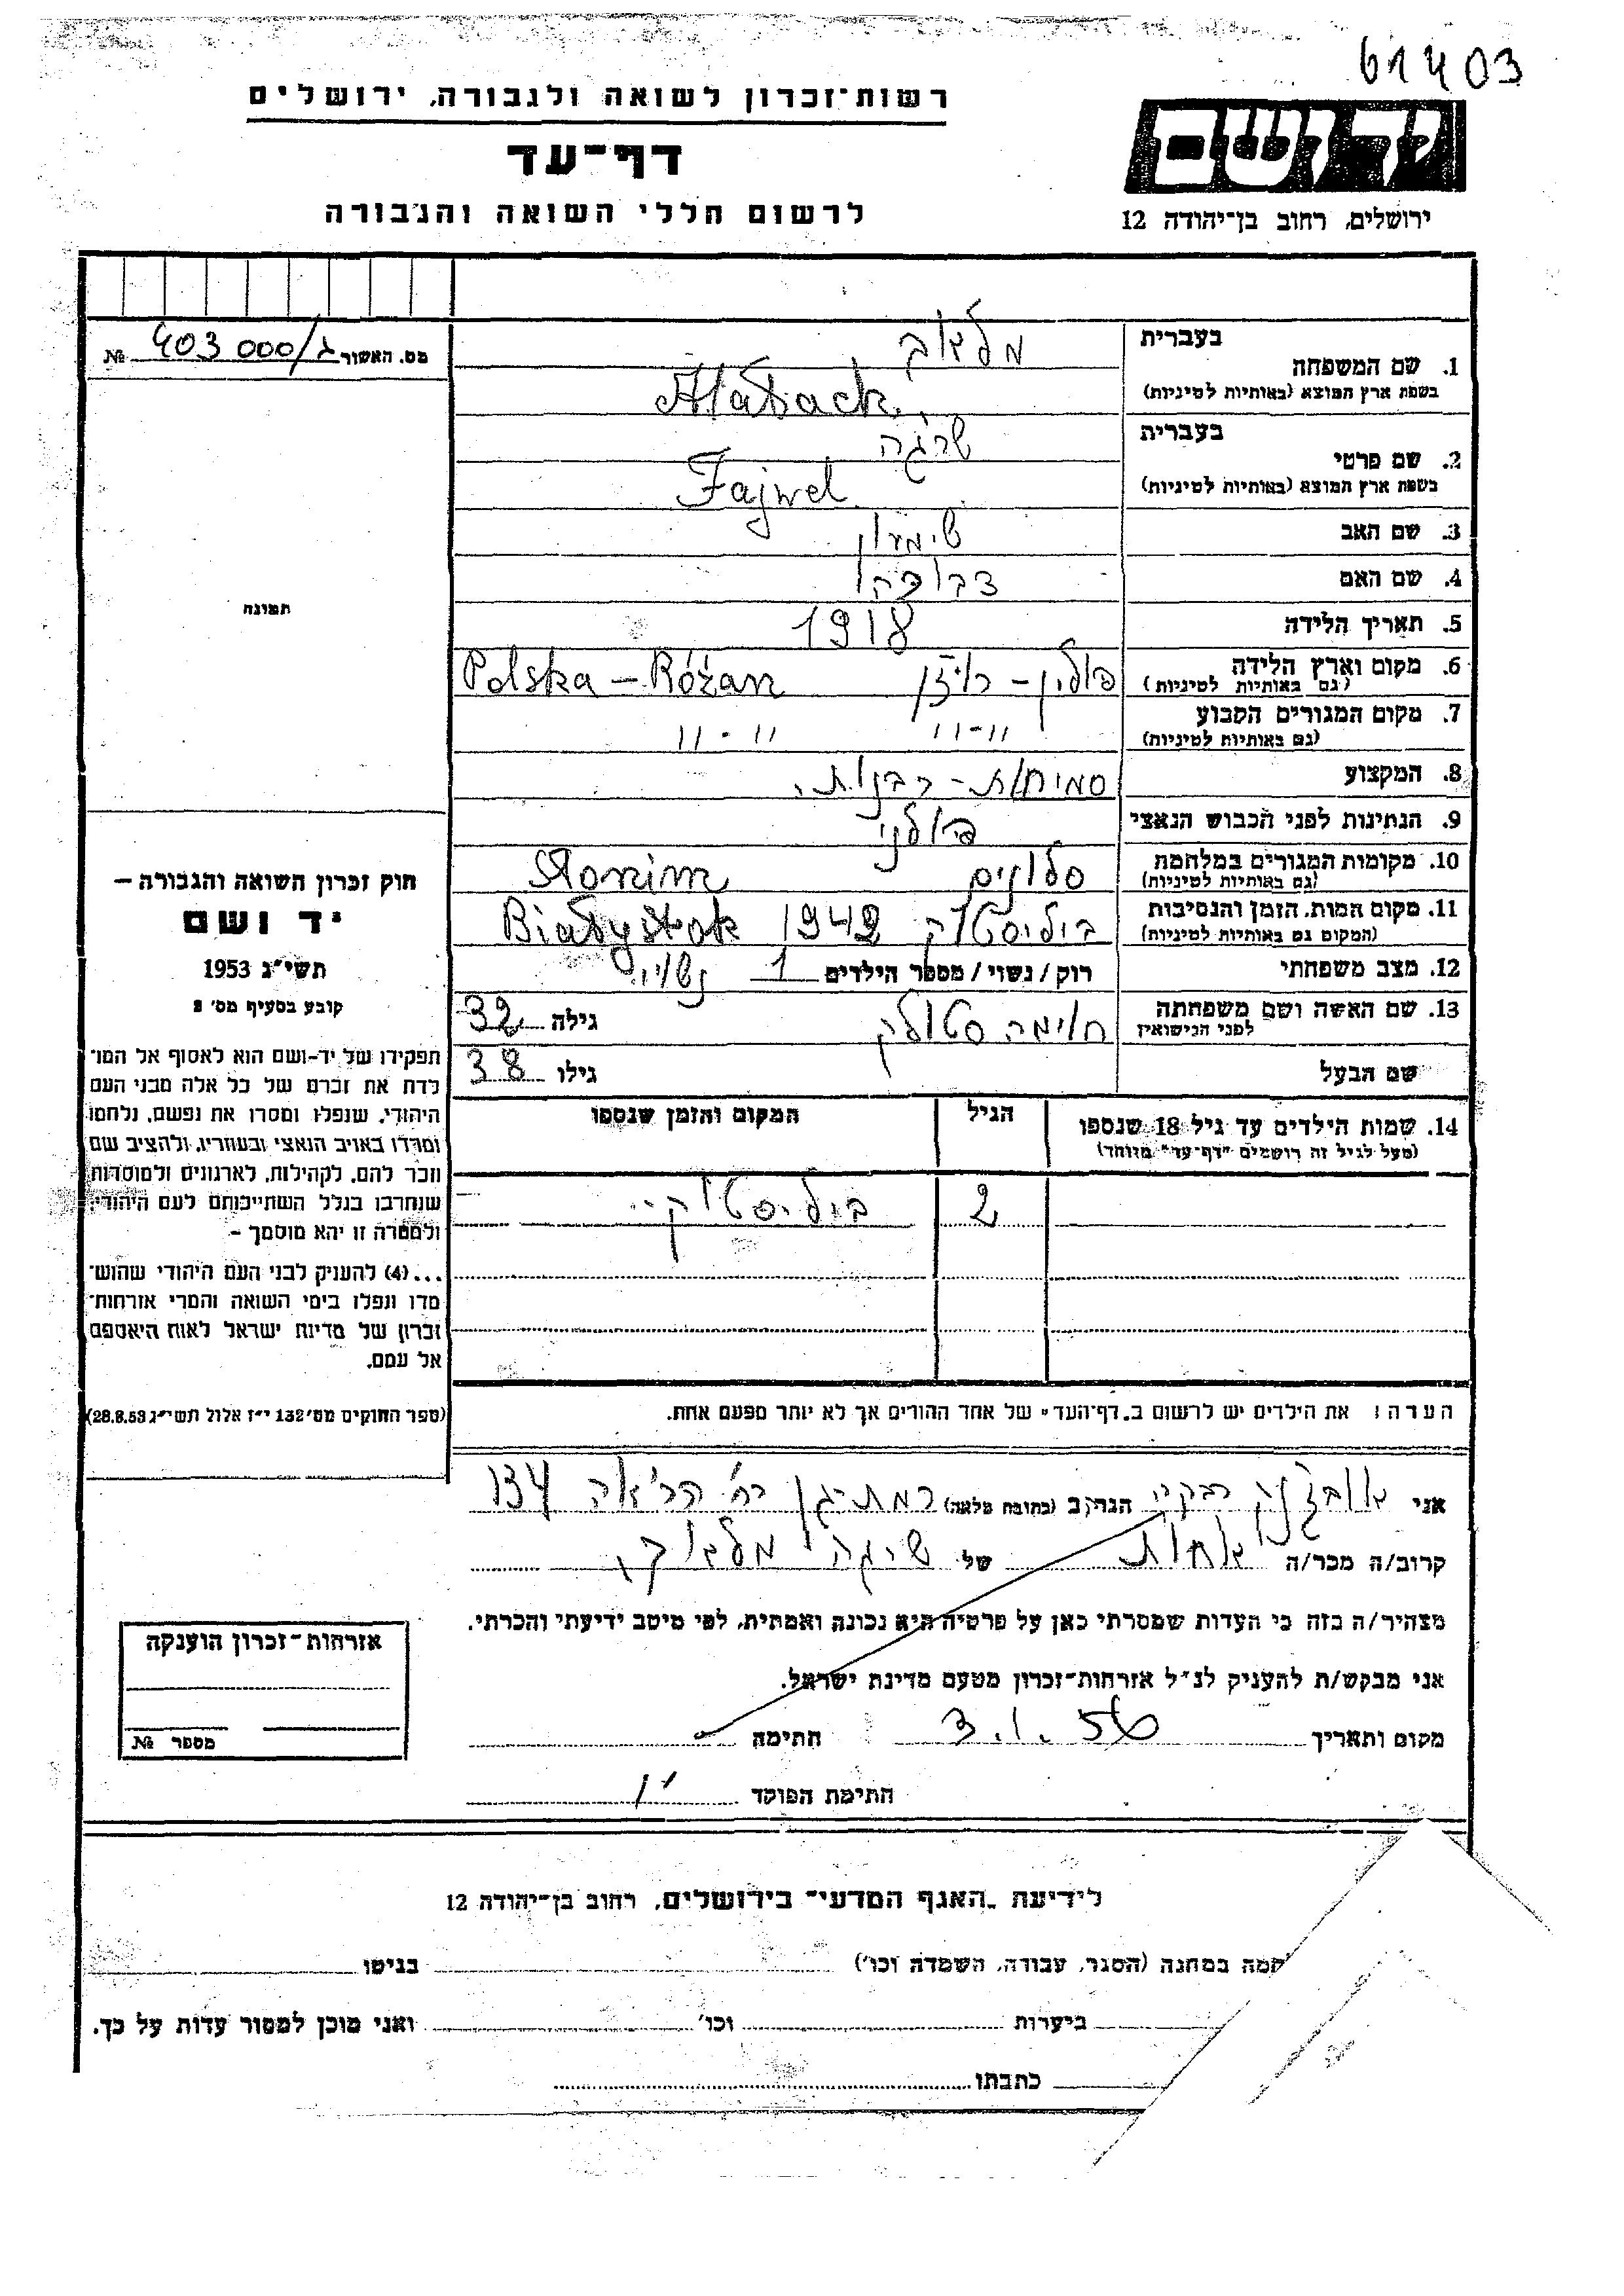 61403
רשות־זכרון לשואה ולגבורה, ירושלים
דף־עד
לרשום חללי השואה והגבורה
יד ושם
ירושלים, רחוב בן־יהודה 12
מס. האשור ג/403000 №
תמונה
חוק זכרון השואה והגבורה —
יד ושם
תשי״ג 1953
קובע בסעיף מס׳ 2
תפקידו של יד-ושם הוא לאסוף אל המו־
לדת את זכרם של כל אלה מבני העם
היהודי, שנפלו ומסרו את נפשם, נלחמו
ומרדו באויב הנאצי ובעוזריו, ולהציב שם
וזכר להם, לקהילות, לארגונים ולמוסדות
שנחרבו בגלל השתייכותם לעם היהודי,
ולמטרה זו יהא מוסמך –
...(4) להעניק לבני העם היהודי שהוש־
מדו ונפלו בימי השואה והמרי אזרחות־
זכרון של מדינת ישראל לאות היאספם
אל עמם.
(ספר החוקים מס׳ 132 י״ז אלול תשי״ג 28.8.53)
בעברית
1. שם המשפחה
בשפת ארץ המוצא (באותיות לטיניות)
בעברית שרגה
2. שם פרטי
בשפת ארץ המוצא (באותיות לטיניות) Fajwel
3. שם האב שימעון
4. שם האם
5. תאריך הלידה 1918
6. מקום וארץ הלידה פולין – רוז'ן Polska – Różan
(גם באותיות לטיניות)
7. מקום המגורים הקבוע 11-11 11-11
(גם באותיות לטיניות)
8. המקצוע סמיחות - רבנות.
9. הנתינות לפני הכבוש הנאצי פולני
10. מקומות המגורים במלחמה סלונים Słonim
(גם באותיות לטיניות)
11. מקום המות, הזמן והנסיבות ביליסטוק 1942 Białystok
(המקום גם באותיות לטיניות)
12. מצב משפחתי רוק / נשוי / מספר הילדים 1 נשוי
13. שם האשה ושם משפחתה גילה 32
לפני הנישואין
שם הבעל גילו 38
14. שמות הילדים עד גיל 18 שנספו הגיל המקום והזמן שנספו
(מעל לגיל זה רושמים "דף־עד" מיוחד)
2 ביליסטוק
הערה: את הילדים יש לרשום ב„דף־העד" של אחד ההורים אך לא יותר מפעם אחת.
אני רבקה הגר/ה ב (כתובת מלאה) רמת-גן רח' הרא'ה 134
קרוב/ה מכר/ה אחות של שרגה
מצהיר/ה בזה כי העדות שמסרתי כאן על פרטיה היא נכונה ואמתית, לפי מיטב ידיעתי והכרתי.
אני מבקש/ת להעניק לנ״ל אזרחות־זכרון מטעם מדינת ישראל.
מקום ותאריך 3.1.56 חתימה
חתימת הפוקד
אזרחות־זכרון הוענקה
מספר №
לידיעת „האגף המדעי" בירושלים, רחוב בן־יהודה 12
חמה במחנה (הסגר, עבודה, השמדה וכו׳) בגיטו
ביערות וכו׳ ואני מוכן למסור עדות על כך.
כתבתו